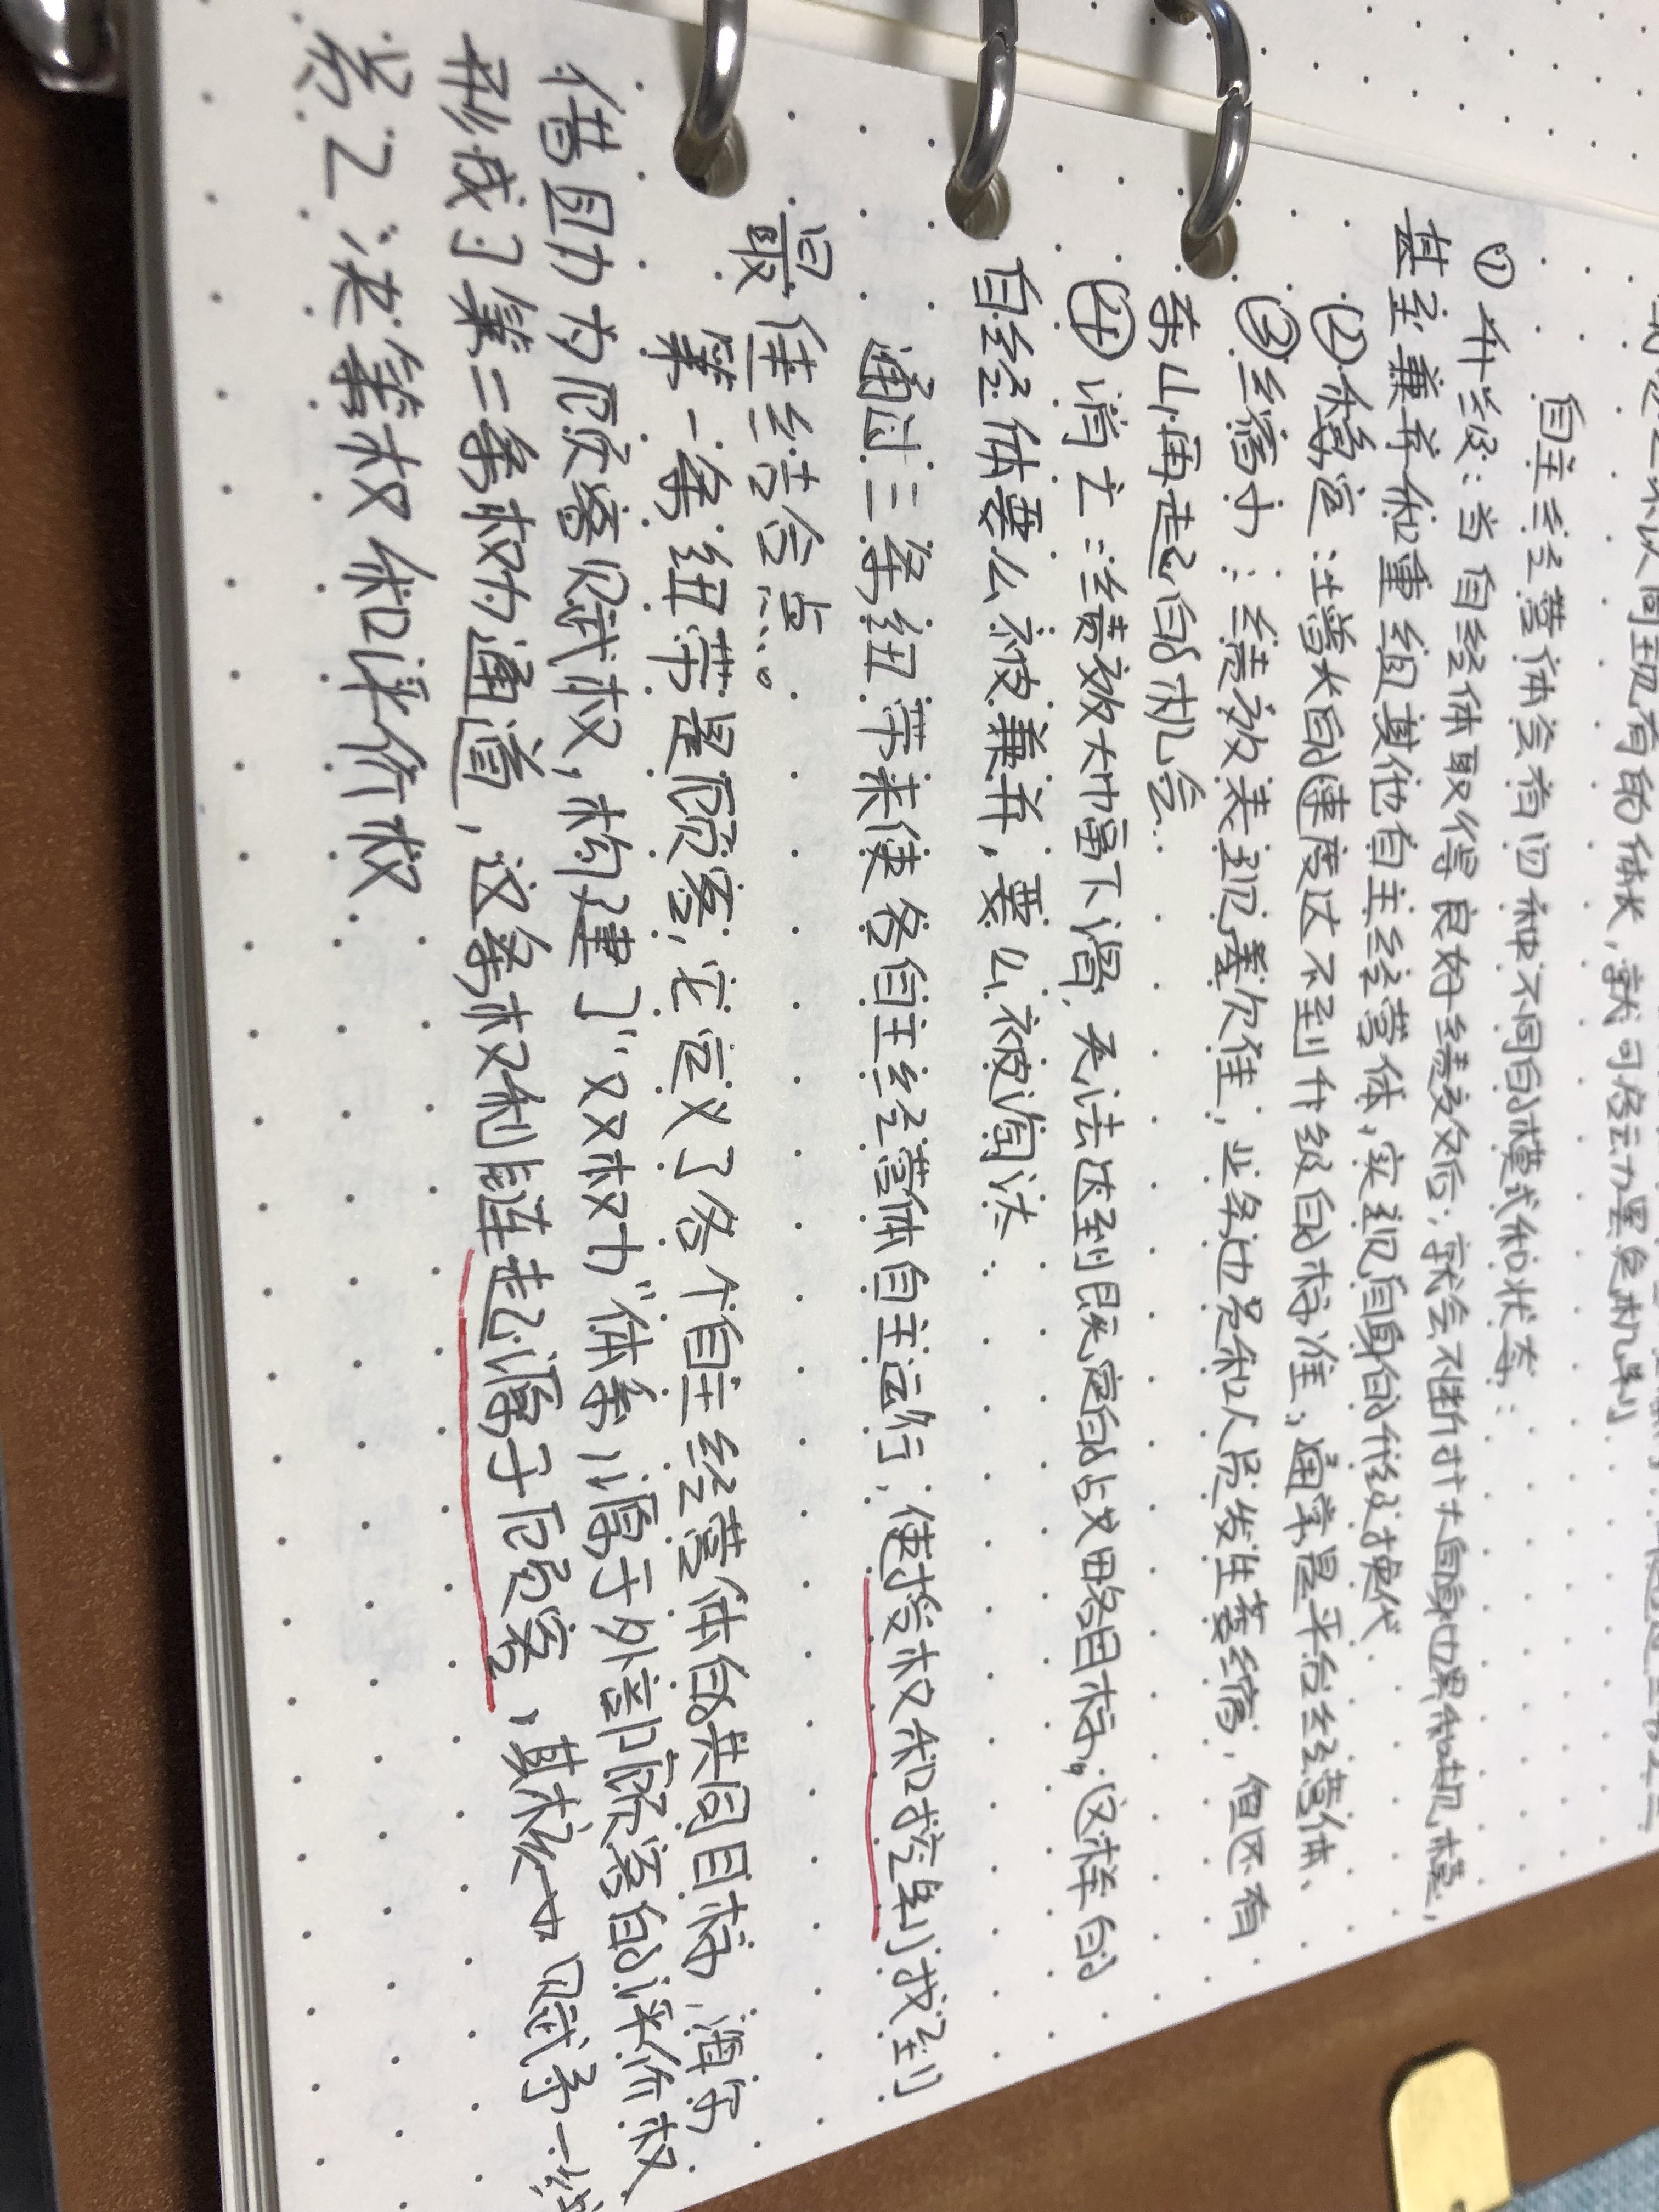 现有的体长，就可启动罢免机制
自主经营体会有四种不同的模式和状态：
① 升级：当自经体取得良好绩效后，就会不断扩大自身边界和规模，
甚至兼并和重组其他自主经营体，实现自身的升级换代
② 稳定：增长的速度达不到升级的标准，通常是平台经营体、
③ 缩小：绩效表现欠佳，业务边界和人员发生萎缩，但还有
东山再起的机会
④ 消亡：绩效大幅下滑，无法达到既定的战略目标，这样的
自经体要么被兼并，要么被淘汰
通过三条纽带来使各自主经营体自主运行，使授权和控制找到
最佳结合点。
第一条纽带是顾客，它定义了各个自主经营体的共同目标，海尔
借助为顾客赋权，构建了“双权力”体系，源于外部顾客的评价权
形成了第二条权力通道，这条权利链起源于顾客，其核心
为了决策权和评价权